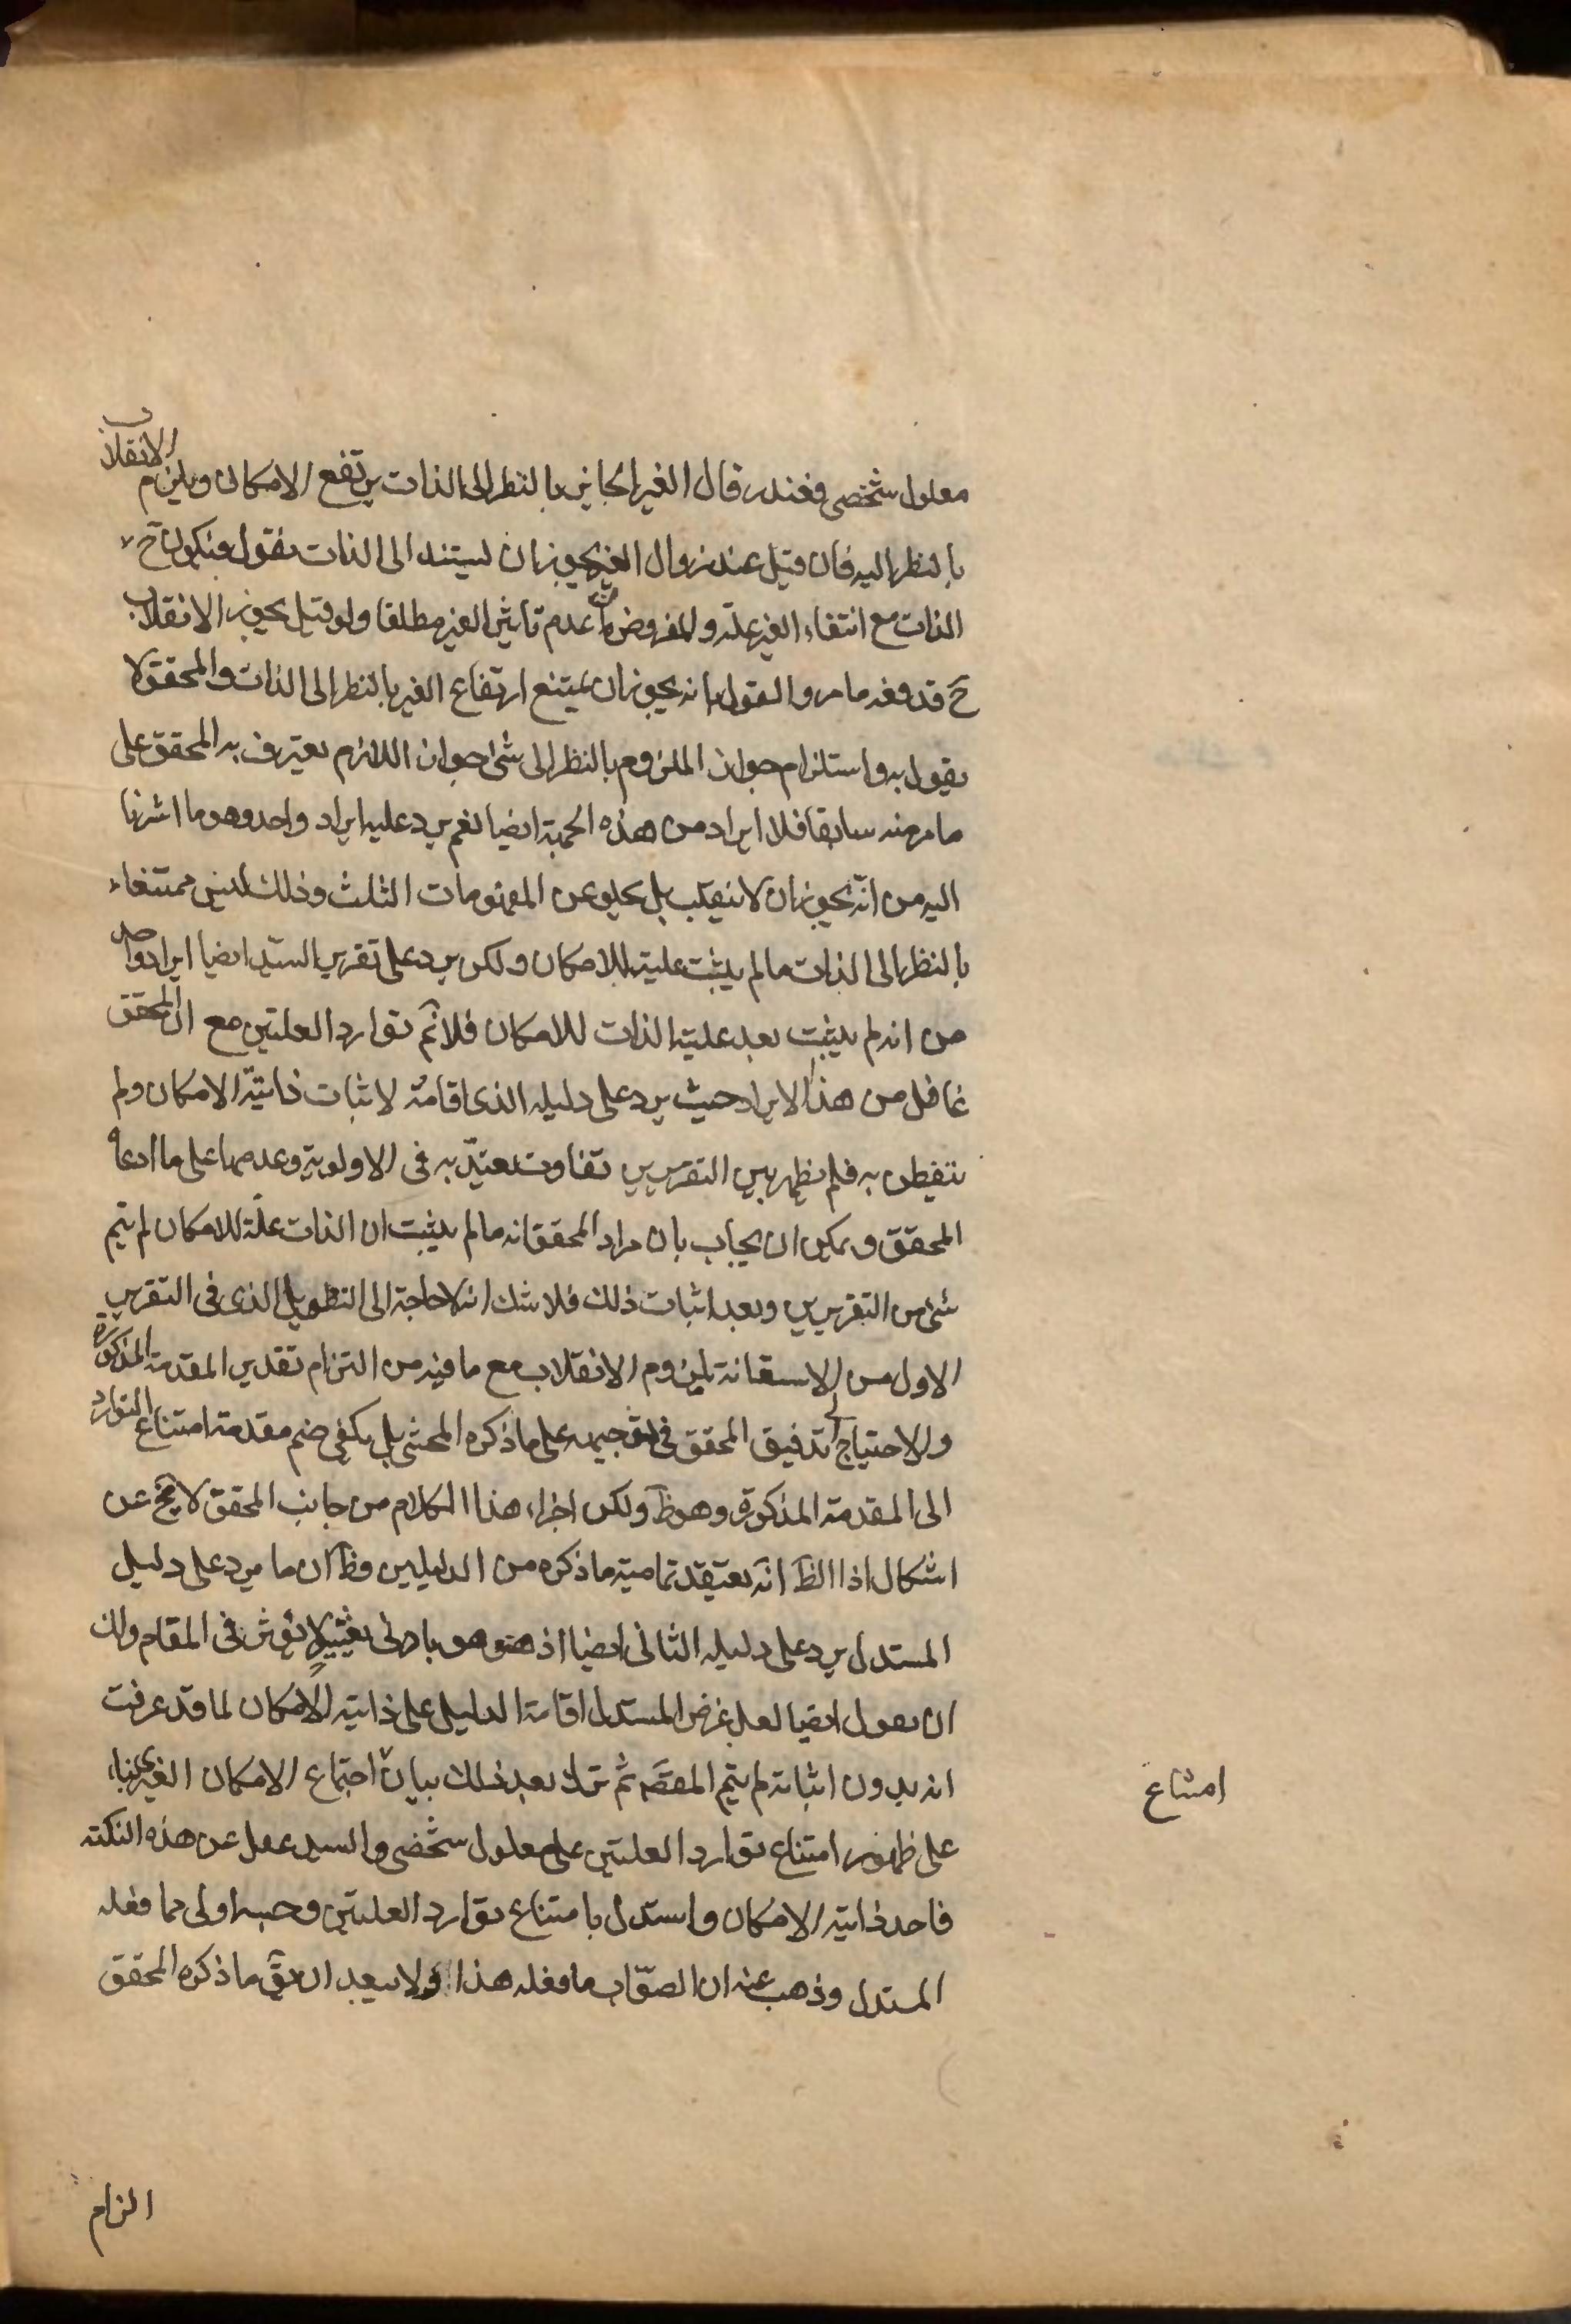 معلول شخصى فعند زوال الغير الجايز بالنظر الى الذات يرتفع الامكان ويلزم الانقلاب
بالنظر اليه فان قيل عند زوال الغير يجوز ان يستند الى الذات نقول فيكون ح
الذات مع انتفاء الغير علة والمفروض عدم تاثير الغير مطلقا ولو قيل يجوز الانقلاب
ح قد دفعه ما مر والقول بانه يجوز ان يمتنع ارتفاع الغير بالنظر الى الذات والمحقق لا
يقول به واستلزام جواز الملزوم بالنظر الى شئ جواز اللازم يعترف به المحقق على
ما مر منه سابقا فلا ايراد من هذه الجهة ايضا نعم يرد عليه ايراد واحد وهو ما اشرنا
اليه من انه يجوز ان لا ينقلب بل يخلو عن المفهومات الثلث وذلك ليس ممتنعا
بالنظر الى الذات ما لم يثبت علية للامكان ولكن يرد على تقرير السيد ايضا ايراد واحد
من انه لم يثبت بعد علية الذات للامكان فلا تم توارد العلتين مع ان المحقق
غافل من هذا الايراد حيث يرد على دليله الذى اقامه لاثبات ذاتية الامكان ولم
يتفطن به فلم يظهر بين التقريرين تفاوت يعتد به فى الاولوية وعدمها على ما ادعاه
المحقق ويمكن ان يجاب بان مراد المحقق انه ما لم يثبت ان الذات علة للامكان لم يتم
شئ من التقريرين وبعد اثبات ذلك فلا شك انه لا حاجة الى التطويل الذى فى التقرير
الاول من الاستعانة بلزوم الانقلاب مع ما فيه من التزام تقدير المقدمة المذكورة
والاحتياج الى تدقيق المحقق فى توجيهه على ما ذكره المحشى بل يكفى ضم مقدمة امتناع التوارد
الى المقدمة المذكورة وهو ظ ولكن اجراء هذا الكلام من جانب المحقق لا يخ عن
اشكال اذ الظ انه يعتقد تمامية ما ذكره من الدليلين وظ ان ما يرد على دليل
المستدل يرد على دليله الثانى ايضا اذ هو هو بادنى تغيير لا يؤثر فى المقام ولك
ان تقول ايضا لعل غرض المستدل اقامة الدليل على ذاتية الامكان لما قد عرفت
انه بدون اثباته لم يتم المقصد ثم ترك بعد ذلك بيان اجتماع الامكان الغيرى بناء
على ظهور امتناع توارد العلتين على معلول شخصى والسيد غفل عن هذه النكتة
فاخذ ذاتية الامكان واستدل بامتناع توارد العلتين وحسبه اولى مما فعله
المستدل وذهب عنه ان الصواب ما فعله هذا ولا يبعد ان يق ما ذكره المحقق
امتناع
الزام